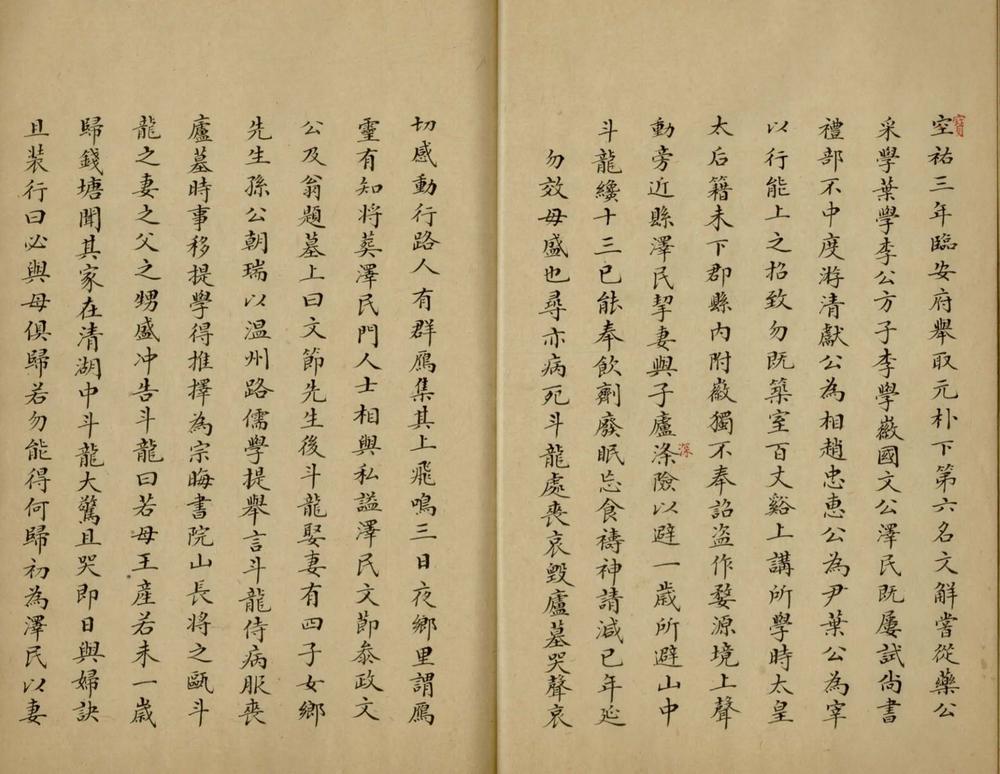 空祐三年臨安府舉取元朴下第六名文解嘗從藥公
寶
采學葉學李公方子李學徽國文公澤民既屢試尚書
禮部不中度游清獻公為相趙忠惠公為尹葉公為宰
以行能上之招致勿既築室百丈谿上講所學時太皇
太后籍未下郡縣內附徽獨不奉詔盗作婺源境上聲
動旁近縣澤民挈妻與子廬涤險以避一歲所避山中
深
斗龍纔十三已能奉飲劑廢眠忘食禱神請減已年延
勿效母盛也尋亦病死斗龍處喪哀毀廬墓哭聲哀
切感動行路人有群鴈集其上飛鳴三日夜鄉里謂鴈
靈有知將葬澤民門人士相與私謚澤民文節叅政文
公及翁題墓上曰文節先生後斗龍娶妻有四子女鄉
先生孫公朝瑞以温州路儒學提舉言斗龍侍病服喪
廬墓時事移提學得推擇為宗晦書院山長將之甌斗
龍之妻之父之甥盛冲告斗龍曰若母王產若未一歲
歸錢塘聞其家在清湖中斗龍大驚且哭即日與婦訣
且装行曰必與母俱歸若勿能得何歸初為澤民以妻